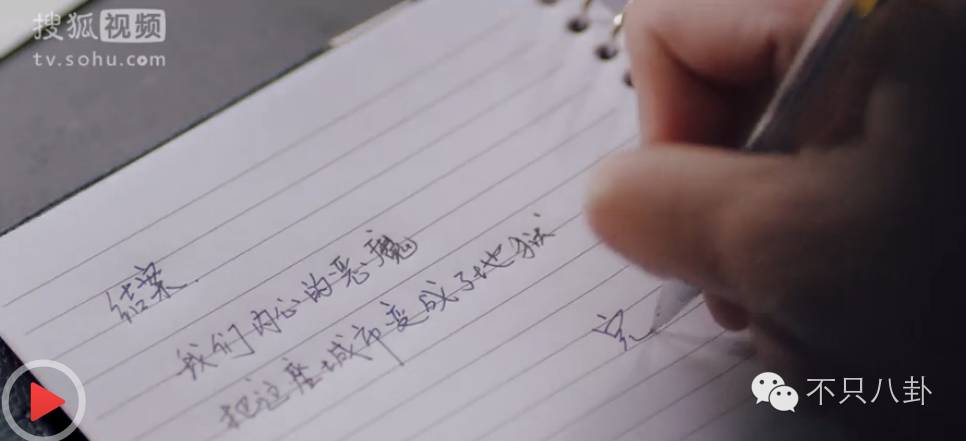 搜狐视频
tv.sohu.com
结案
我们内心的恶魔
把这座城市变成了地狱
完
不只八卦